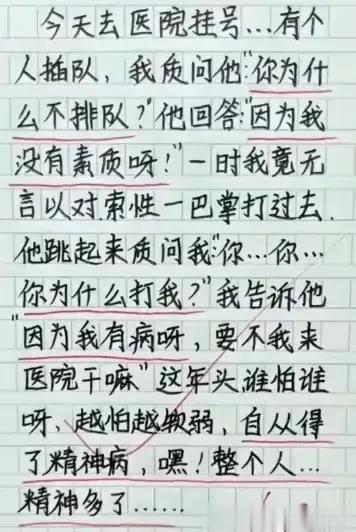 今天去医院挂号…有个
人插队，我质问他"你为什
么不排队？"他回答"因为我
没有素质呀！"一时我竟无
言以对索性一巴掌打过去.
他跳起来质问我"你…你…
你为什么打我？"我告诉他
"因为我有病呀，要不我来
医院干嘛"这年头谁怕谁
呀、越怕越软弱，自从得
了精神病，嘿！整个人…
精神多了……